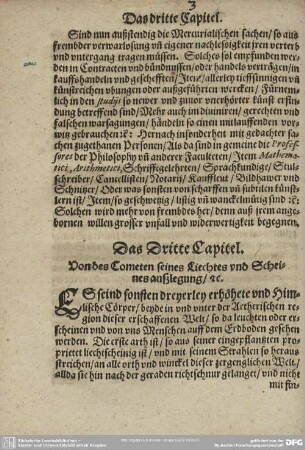 3
Das dritte Capitel.
Sind nun außstendig die Mercurialischen sachen/ so aus
frembder verwarlosung vñ eigener nachlesigkeit jren verterb
vnd vntergang tragen müssen. Solches sol empfunden wer-
den in Contracten vnd bündnussen/ oder handels verträgen/ in
kauffshandeln vnd geschefften/ Jtem/ allerley tieffsinnigen vñ
künstreichen vbungen oder außgeführten wercken/ Fürnem-
lich in den studijs so newer vnd zuuor vnerhörter künst erfin-
dung betreffend sind/ Mehr auch im diuiniren/ gerechten vnd
falschen warsagungen/ händeln so einen mutlauffenden vor-
witz gebrauchen ꝛc: Hernach insonderheit mit gedachter sa-
chen zugethanen Personen/ Als da sind in gemeine die Profes-
sores der Philosophy vñ anderer Faculteten/ Jtem Mathema-
tici, Arithmetici, Schrifftgelehrten/ Sprachkundige/ Stul-
schreiber/ Cancellisten/ Notarij/ Kauffleut/ Bildhawer vnd
Schnitzer/ Oder was sonsten von scharffen vñ subtilen künst-
lern ist/ Jtem/ so geschwetzig/ listig vñ wanckelmütig sind ꝛc:
Solchen wird mehr von frembdes her/ denn auß jrem ange-
bornen willen grosser vnfall vnd widerwertigkeit begegnen.
Das Dritte Capitel.
Von des Cometen seines Liechtes vnd Schei-
nes außlegung/ ꝛc.
ES seind sonsten dreyerley erhöhete vnd Him-
lische Cörper/ beyde in vnd vnter der Aetherischen re-
gion dieser erschaffenen Welt/ so da leuchten oder er-
scheinen vnd von vns Menschen auff dem Erdboden gesehen
werden. Die erste arth ist/ so aus seiner eingepflantzten pro-
prietet liechtscheinig ist/ vnd mit seinen Strahlen so heraus
streichen/ an alle orth vnd winckel dieser zergenglichen Welt/
allda sie hin nach der geraden richtschnur gelanget/ vnd nicht
mit fin-